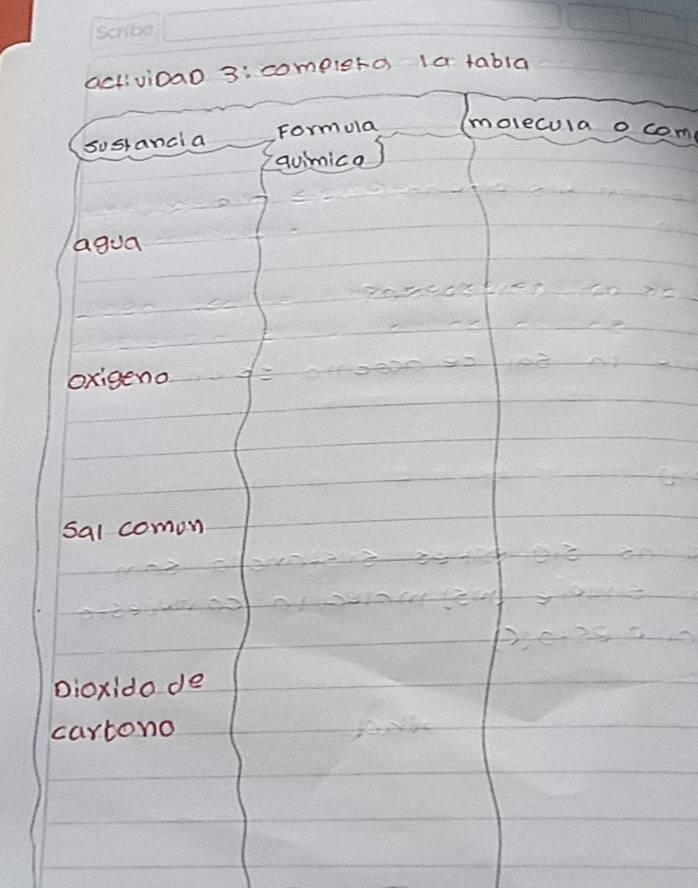 Scribe
activiDaD 3: completa la tabla
sustancia Formula química molecula o com
agua
oxigeno
Sal comun
Dioxido de
carbono